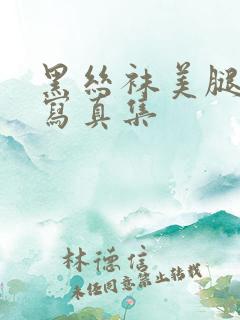 黑絲袜美腿
寫真集
林德信
未经同意禁止转载